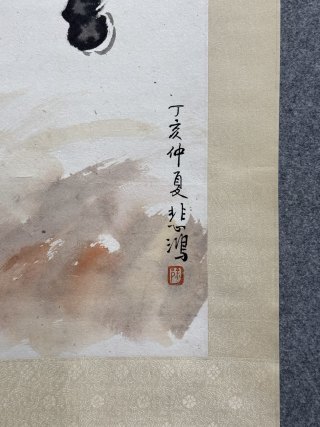 丁亥仲夏悲鴻